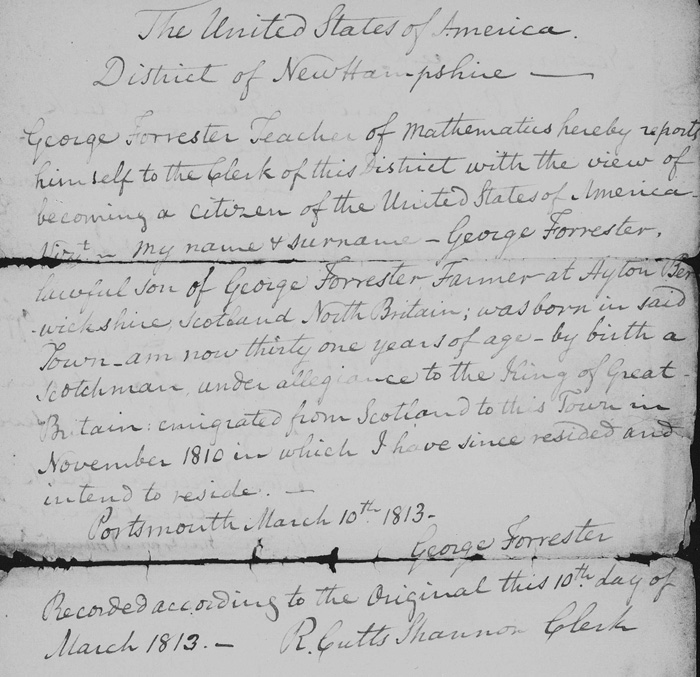 The United States of America.
District of NewHampshire —
George Forrester Teacher of Mathematics hereby reports
himself to the Clerk of this District with the view of
becoming a citizen of the United States of America -
Vizt ~ My name & surname - George Forrester,
lawful son of George Forrester Farmer at Ayton Ber
-wickshire Scotland North Britain; was born in said
Town - am now thirty one years of age - by birth a
Scotchman, under allegiance to the King of Great -
Britain: emigrated from Scotland to this Town in
November 1810 in which I have since resided and
intend to reside. —
Portsmouth March 10th 1813 -
George Forrester
Recorded according to the Original this 10th day of
March 1813. — R. Cutts Shannon Clerk